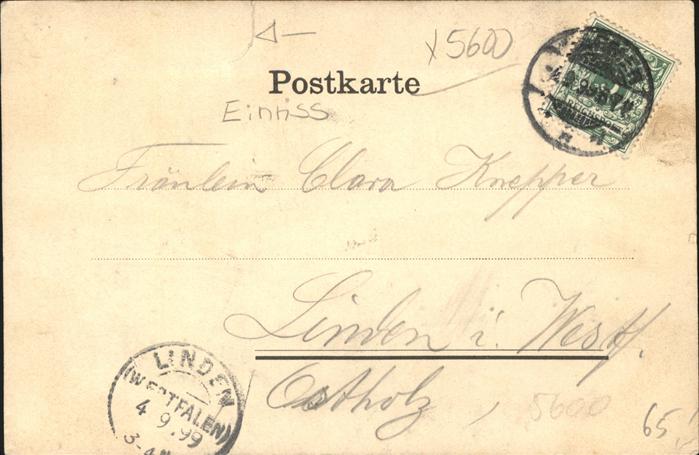 x 5600
Postkarte
Einriss
Fräulein Clara Knepper
Linden i. Westf.
Ostholz
5600
65
LINDEN
(WESTFALEN)
4 9 99
3-4 N